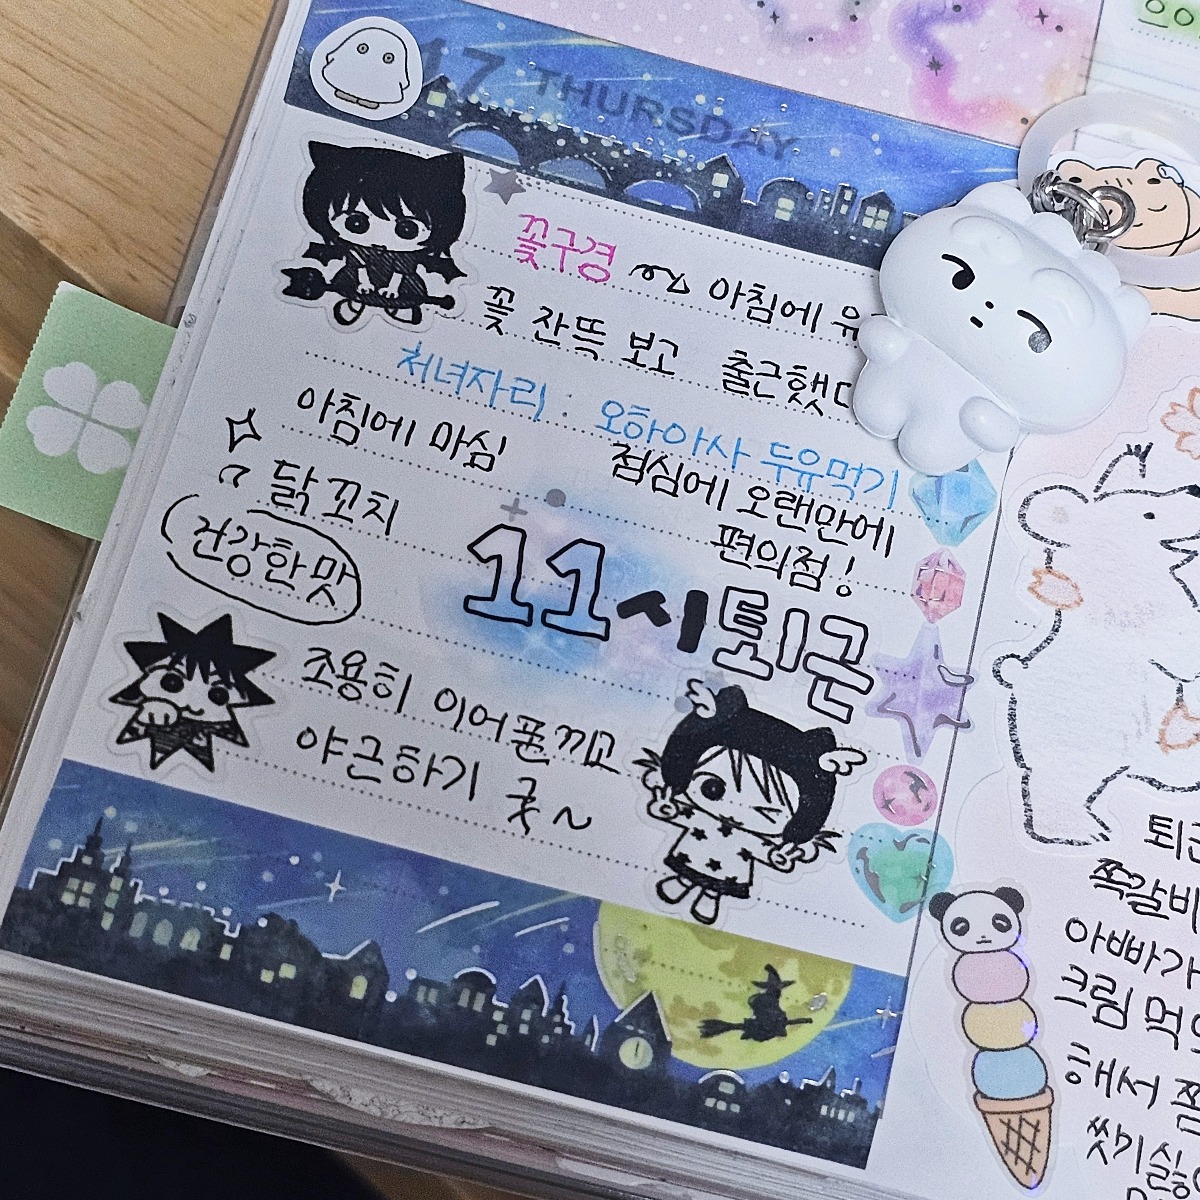 17 THURSDAY
꽃구경 아침에 유
꽃 잔뜩 보고 출근했다
처녀자리 : 오하아사 두유먹기
아침에 마심
점심에 오랜만에
편의점!
닭꼬치
건강한맛
11시퇴근
조용히 이어폰끼고
야근하기 굿~
퇴근
쪽갈비
아빠가
그림 먹
해서 찜
씻기 싫